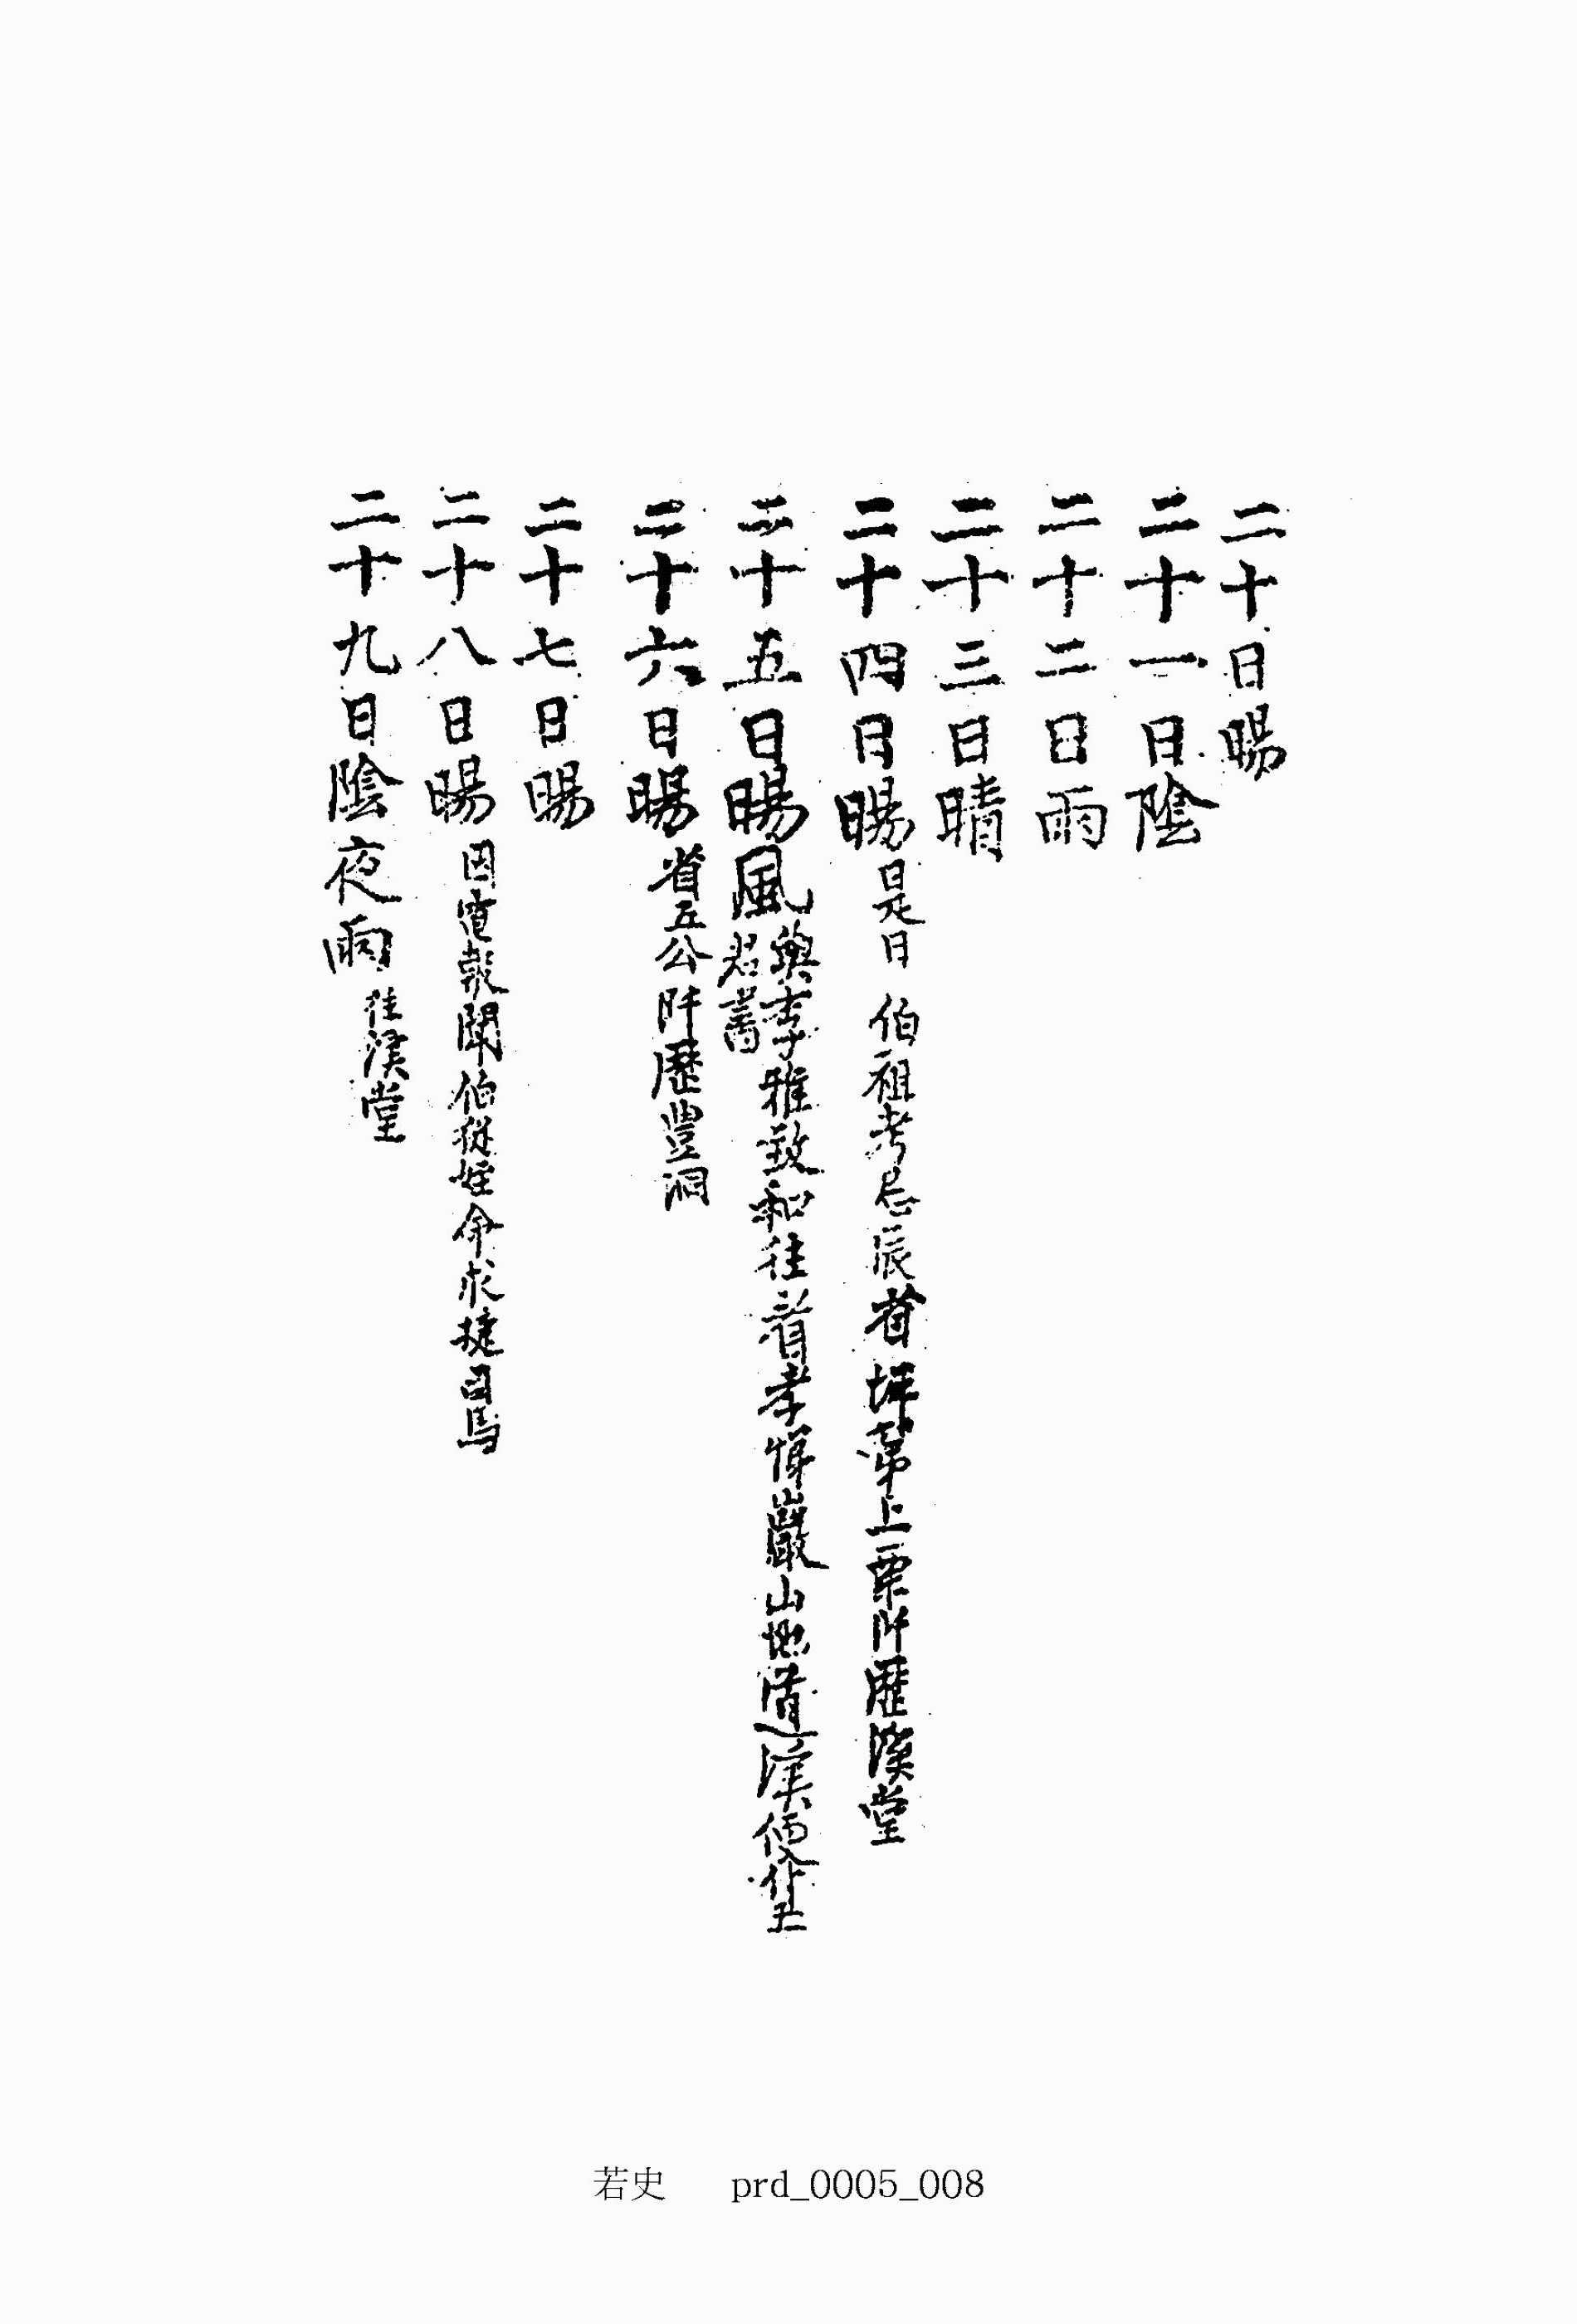 二十日暘
二十一日陰
二十二日雨
二十三日晴
二十四日暘 是日 伯祖考忌辰省坪第上栗阡歷漢堂
二十五日暘風 與李雅致和往省孝悌巖山地道漢
二十六日暘 省五公阡歷豊洞
二十七日暘
二十八日暘 因電報聞伯從姪命求捷司馬
二十九日陰夜雨 往漢堂
若史 prd_0005_008